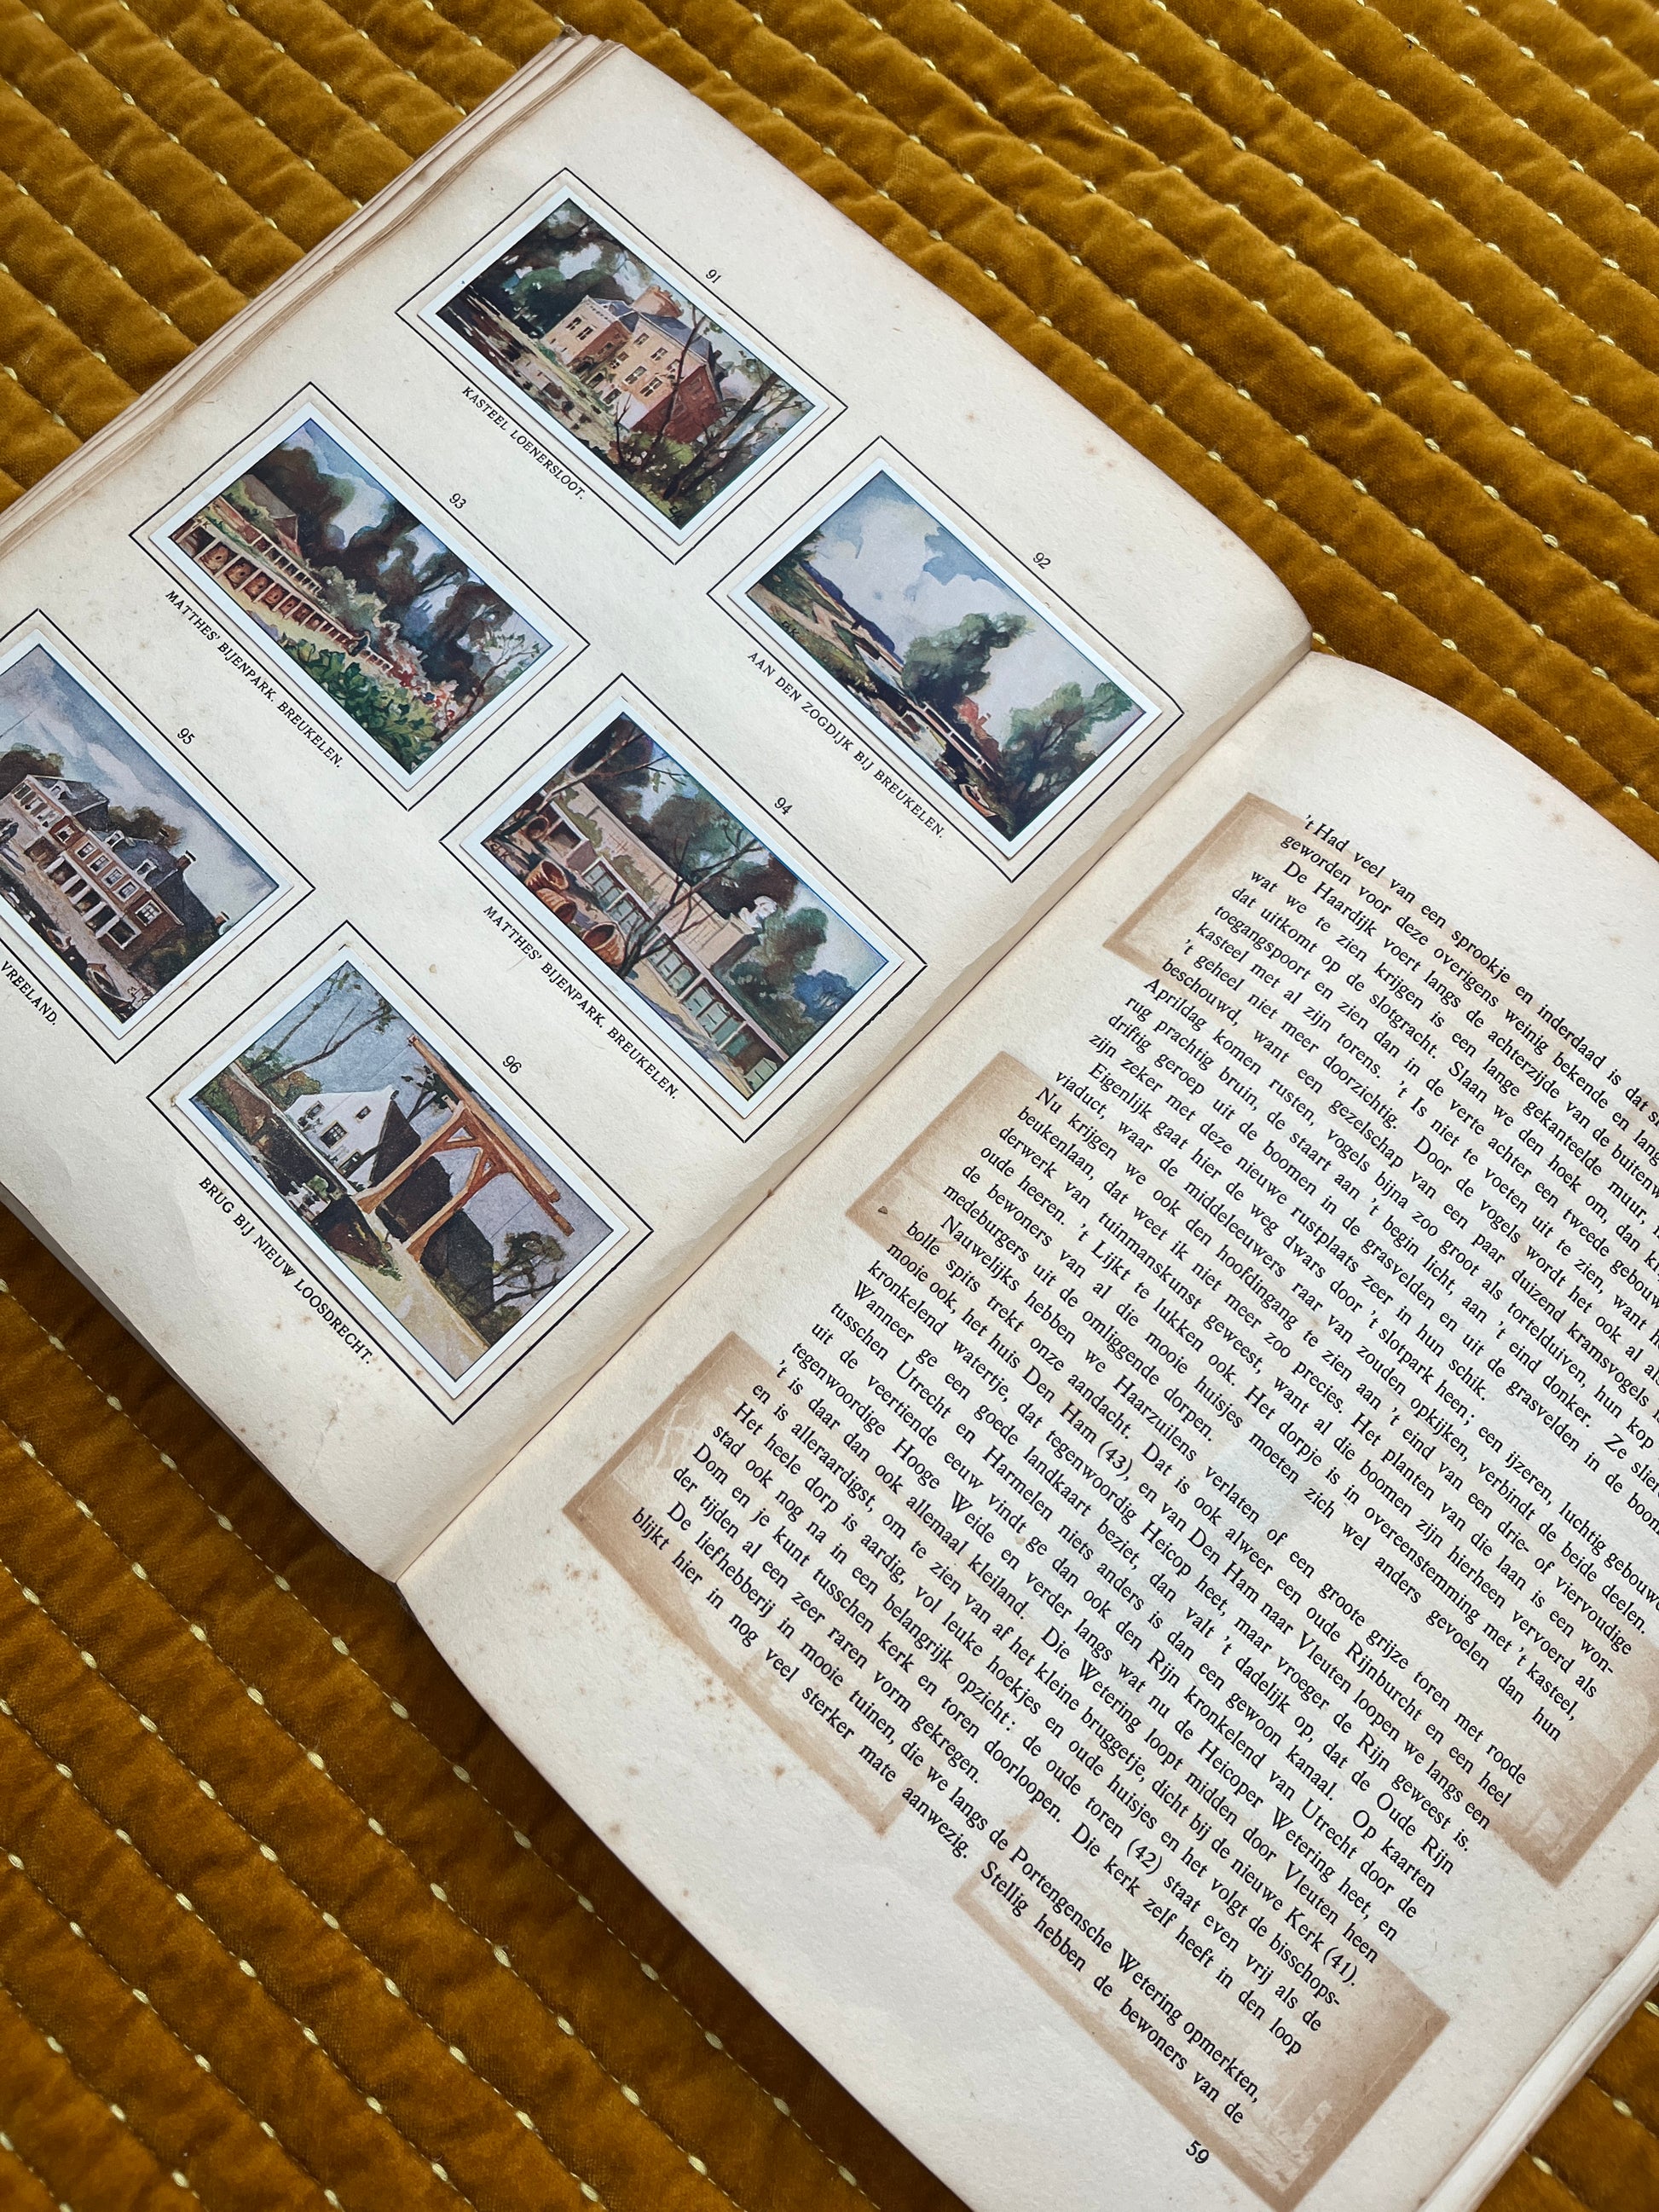 91
KASTEEL LOENERSLOOT.
92
AAN DEN ZOGDIJK BIJ BREUKELEN.
93
MATTHES' BIJENPARK. BREUKELEN.
94
MATTHES' BIJENPARK. BREUKELEN.
95
VREELAND.
96
BRUG BIJ NIEUW LOOSDRECHT.
't Had veel van een sprookje en inderdaad is dat
geworden voor deze overigens weinig bekende en
De Haardijk voert langs de achterzijde van de
wat we te zien krijgen is een lange gekanteelde muur,
dat uitkomt op de slotgracht. Slaan we den hoek om, dan
toegangspoort en zien dan in de verte achter een tweede
kasteel met al zijn torens. 't Is niet te voeten uit te zien, want
't geheel niet meer doorzichtig. Door de vogels wordt het ook al
beschouwd, want een gezelschap van een paar duizend kramsvogels
Aprildag komen rusten, vogels bijna zoo groot als tortelduiven, hun kop
rug prachtig bruin, de staart aan 't begin licht, aan 't eind donker. Ze
driftig geroep uit de boomen in de grasvelden en uit de grasvelden in de
zijn zeker met deze nieuwe rustplaats zeer in hun schik.
Eigenlijk gaat hier de weg dwars door 't slotpark heen; een ijzeren, luchtig
viaduct, waar de middeleeuwers raar van zouden opkijken, verbindt de beide deelen.
Nu krijgen we ook den hoofdingang te zien aan 't eind van een drie- of viervoudige
beukenlaan, dat weet ik niet meer zoo precies. Het planten van die laan is een won-
derwerk van tuinmanskunst geweest, want al die boomen zijn hierheen vervoerd als
oude heeren. 't Lijkt te lukken ook. Het dorpje is in overeenstemming met 't kasteel,
de bewoners van al die mooie huisjes moeten zich wel anders gevoelen dan hun
medeburgers uit de omliggende dorpen.
Nauwelijks hebben we Haarzuilens verlaten of een groote grijze toren met roode
bolle spits trekt onze aandacht. Dat is ook alweer een oude Rijnburcht en een heel
mooie ook, het huis Den Ham (43), en van Den Ham naar Vleuten loopen we langs een
kronkelend watertje, dat tegenwoordig Heicop heet, maar vroeger de Rijn geweest is.
Wanneer ge een goede landkaart beziet, dan valt 't dadelijk op, dat de Oude Rijn
tusschen Utrecht en Harmelen niets anders is dan een gewoon kanaal. Op kaarten
uit de veertiende eeuw vindt ge dan ook den Rijn kronkelend van Utrecht door de
tegenwoordige Hooge Weide en verder langs wat nu de Heicoper Wetering heet, en
't is daar dan ook allemaal kleiland. Die Wetering loopt midden door Vleuten heen
en is alleraardigst, om te zien van af het kleine bruggetje, dicht bij de nieuwe Kerk (41).
Het heele dorp is aardig, vol leuke hoekjes en oude huisjes en het volgt de bisschops-
stad ook nog na in een belangrijk opzicht: de oude toren (42) staat even vrij als de
Dom en je kunt tusschen kerk en toren doorloopen. Die kerk zelf heeft in den loop
der tijden al een zeer raren vorm gekregen.
De liefhebberij in mooie tuinen, die we langs de Portengensche Wetering opmerkten,
blijkt hier in nog veel sterker mate aanwezig. Stellig hebben de bewoners van de
59